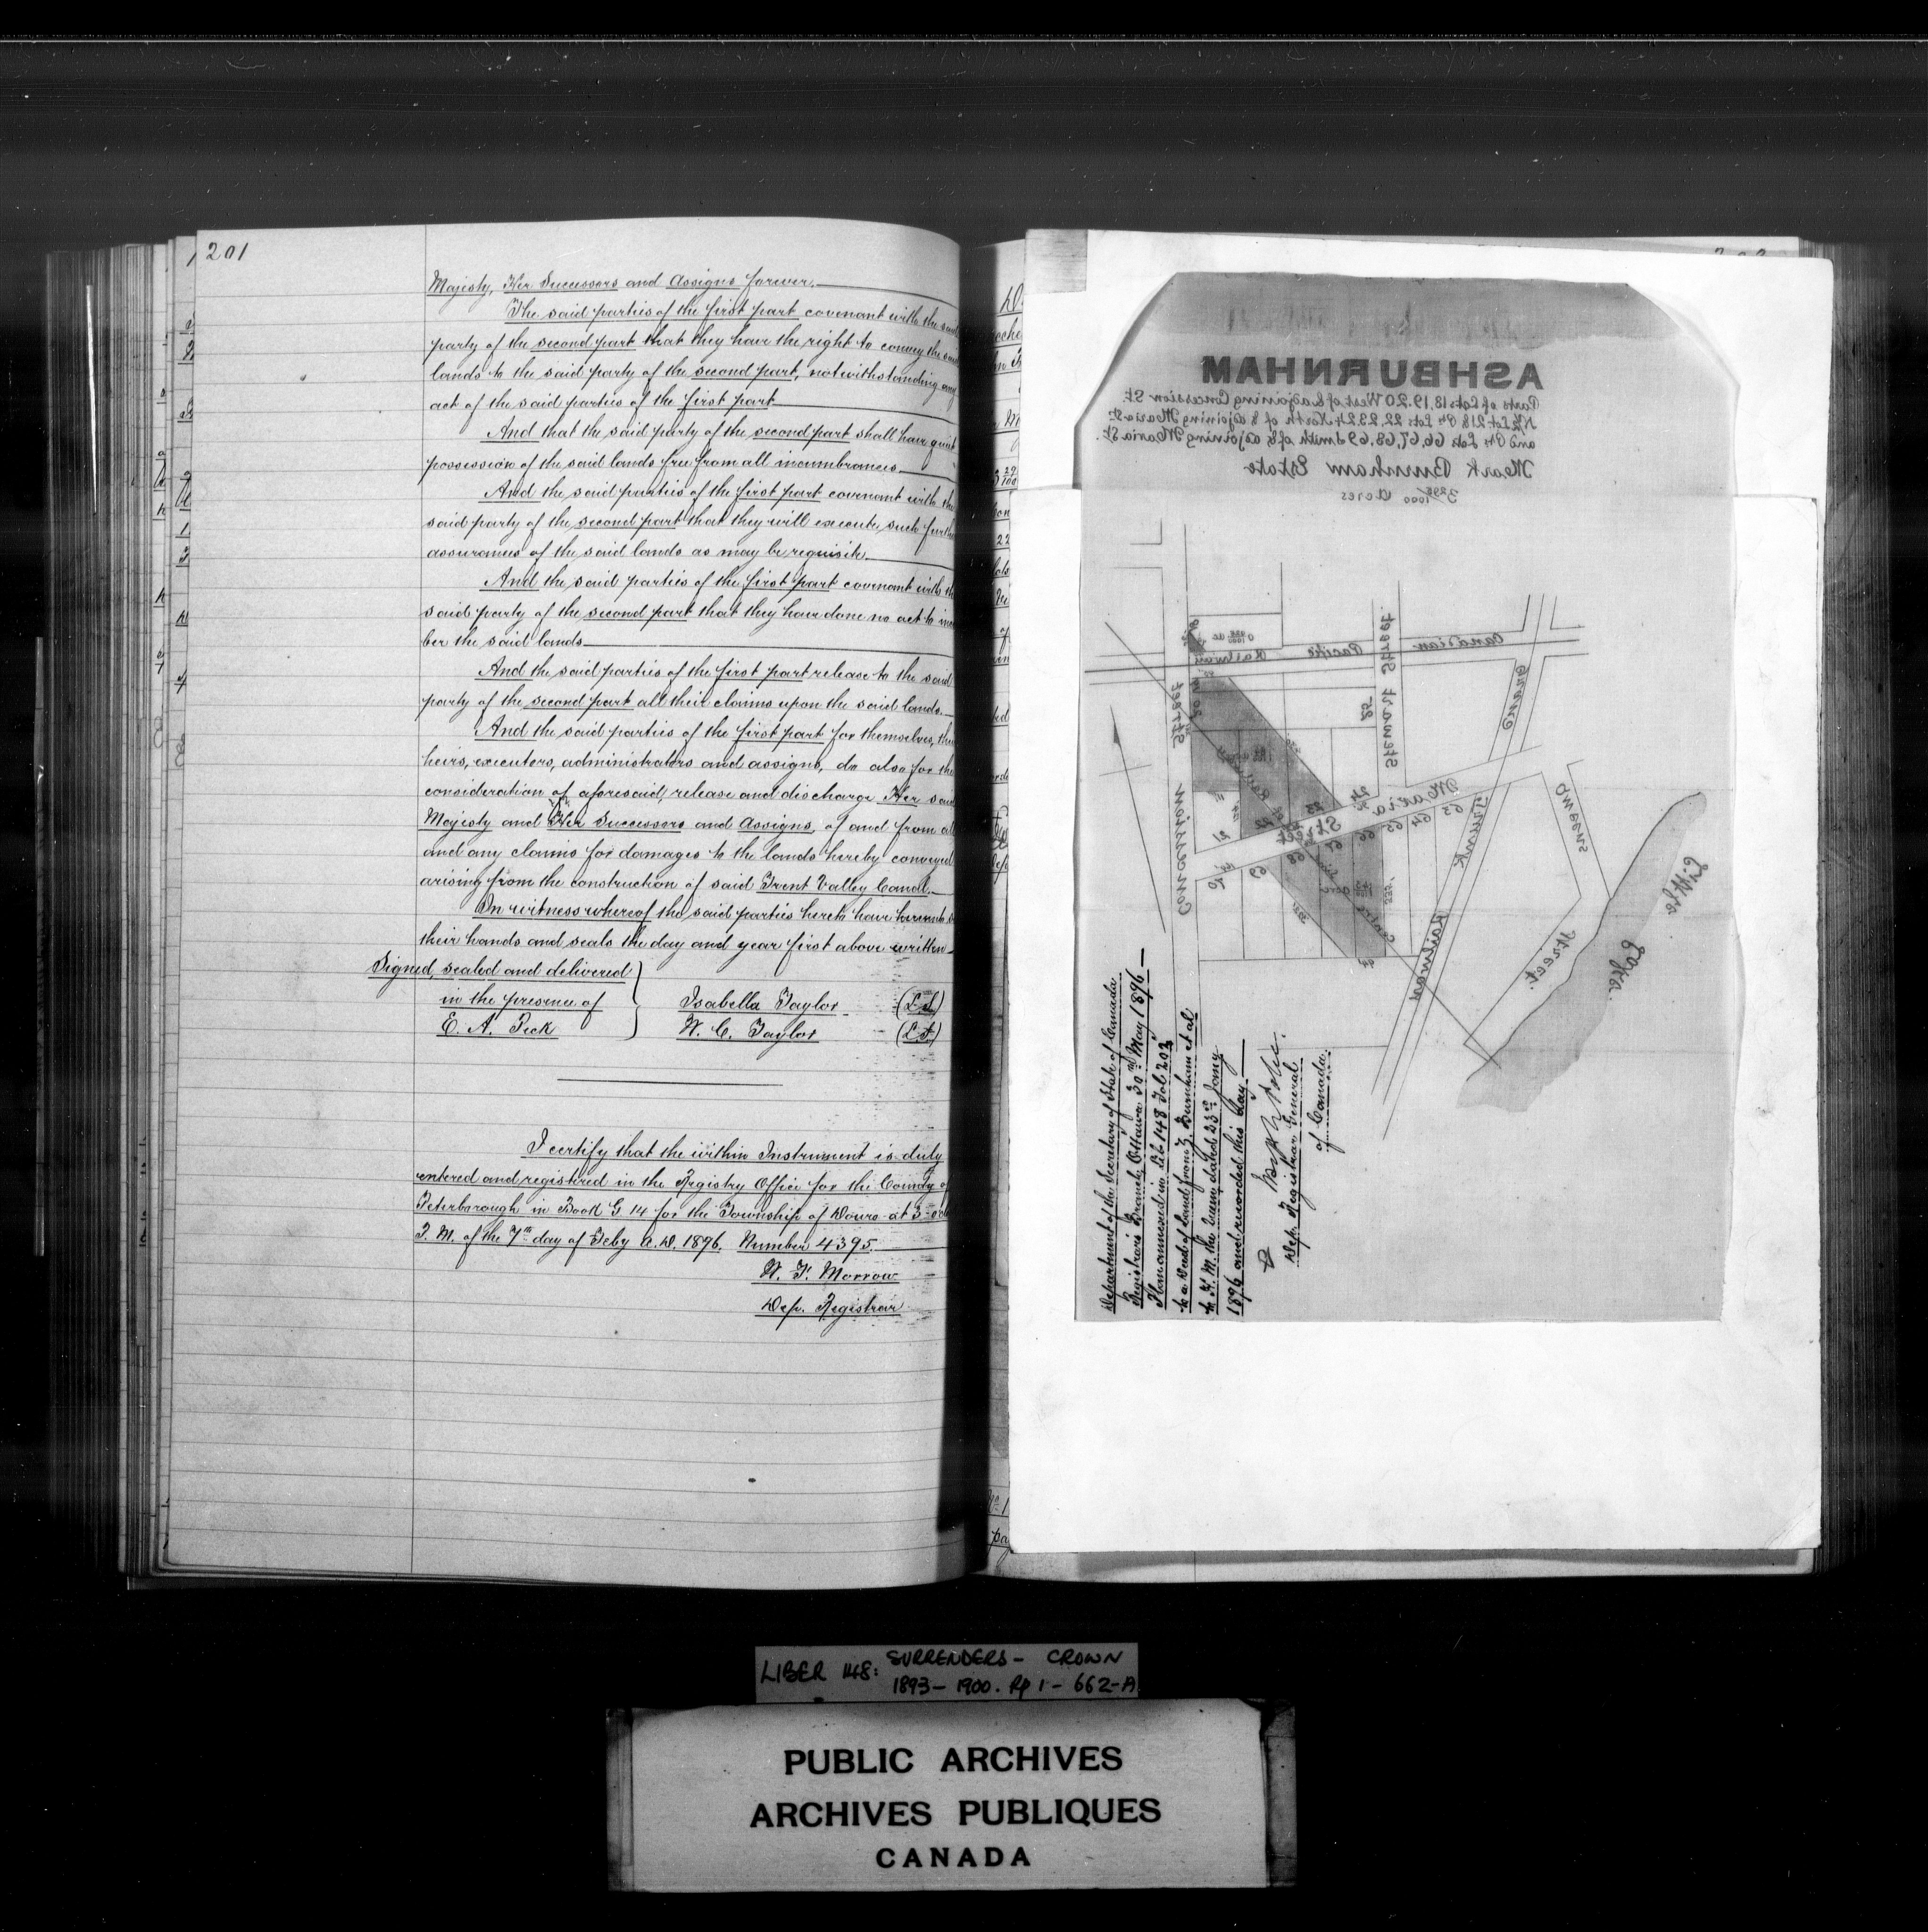 201
Majesty, Her Successors and Assigns forever.
The said parties of the first part covenant with the said
party of the second part that they have the right to convey the said
lands to the said party of the second part, notwithstanding any
act of the said parties of the first part
And that the said party of the second part shall have quiet
possession of the said lands free from all incumbrances
And the said parties of the first part covenant with the
said party of the second part that they will execute such further
assurances of the said lands as may be requisite
And the said parties of the first part covenant with the
said party of the second part that they have done no act to incum
ber the said lands
And the said parties of the first part release to the said
party of the second part all their claims upon the said lands.
And the said parties of the first part for themselves, their
heirs, executors, administrators and assigns, do also for the
consideration of aforesaid, release and discharge Her said
Majesty and Her Successors and Assigns, of and from all
and any claims for damages to the lands hereby conveyed
arising from the construction of said Trent Valley Canal.
In witness whereof the said parties hereto have hereunto set
their hands and seals the day and year first above written
Signed, sealed and delivered
in the presence of
E. A. Peck
Isabella Taylor (L.S.)
W. C. Taylor (L.S.)
I certify that the within Instrument is duly
entered and registered in the Registry Office for the County of
Peterborough in Book G 14 for the Township of Douro at 3
P. M. of the 7th day of Feby A.D. 1896. Number 4395.
W. F. Morrow
Dep. Registrar
ASHBURNHAM
Parts of Lots 18, 19, 20 West of & adjoining Concession St.
N½ Lot 21 & Pts Lots 22, 23, 24 North of & adjoining Maria St.
and Pts Lots 66, 67, 68, 69 South of & adjoining Maria St.
Mark Burnham Estate
Acres
Canadian Pacific Railway
Stewart Street
Concession Street
Maria Street
Grand Trunk Railway
Street
Little Lake
25
24
23
22
21
63
64
65
66
67
68
69
Department of the Secretary of State of Canada
Registrar's Branch, Ottawa 30th May 1896
Plan annexed in Lib 148 Fol 203
to a Deed of Land from Z. Burnham et al
to H. M. the Queen, dated 23rd Jany
1896 and recorded this day.
Dep. Registrar General
of Canada.
LIBER 148: SURRENDERS - CROWN
1893 - 1900. Pp 1 - 662-A
PUBLIC ARCHIVES
ARCHIVES PUBLIQUES
CANADA